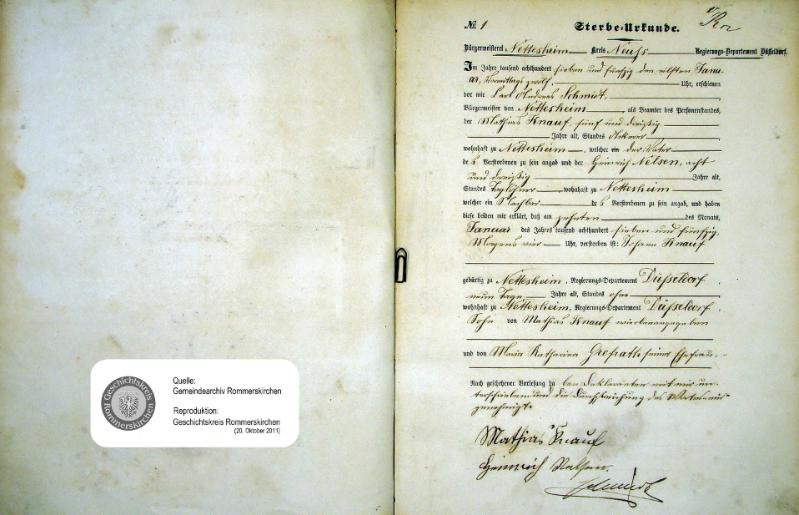 Geschichtskreis
Rommerskirchen
Quelle:
Gemeindearchiv Rommerskirchen
Reproduktion:
Geschichtskreis Rommerskirchen
(20. Oktober 2011)
№ 1 Sterbe-Urkunde.
Bürgermeisterei Nettesheim Kreis Neuss Regierungs-Departement Düsseldorf.
Im Jahre tausend achthundert sieben und fünfzig den elften Janu-
ar, Vormittags zwölf, Uhr, erschien
vor mir Carl Andreas Schmidt,
Bürgermeister von Nettesheim, als Beamter des Personenstandes,
der Mathias Knauf, fünf und dreißig
Jahre alt, Standes Ackerer
wohnhaft zu Nettesheim, welcher ein der Vater
de s Verstorbenen zu sein angab und der Heinrich Nelsen, acht
und dreißig Jahre alt,
Standes Taglöhner wohnhaft zu Nettesheim
welcher ein Nachbar de s Verstorbenen zu sein angab, und haben
diese beiden mir erklärt, daß am zehnten des Monats,
Januar des Jahres tausend achthundert sieben und fünfzig,
Morgens vier Uhr, verstorben ist: Johann Knauf
gebürtig zu Nettesheim, Regierungs-Departement Düsseldorf
neun Tage Jahre alt, Standes ohne
wohnhaft zu Nettesheim, Regierungs-Departement Düsseldorf,
Sohn von Mathias Knauf wie oben angegeben
und von Maria Katharina Grefrath seiner Ehefrau
Nach geschehener Vorlesung zu den Deklaranten mit mir un-
terschrieben und die Durchstreichung des Wortes
genehmigt.
Mathias Knauf
Heinrich Nelsen
Schmidt